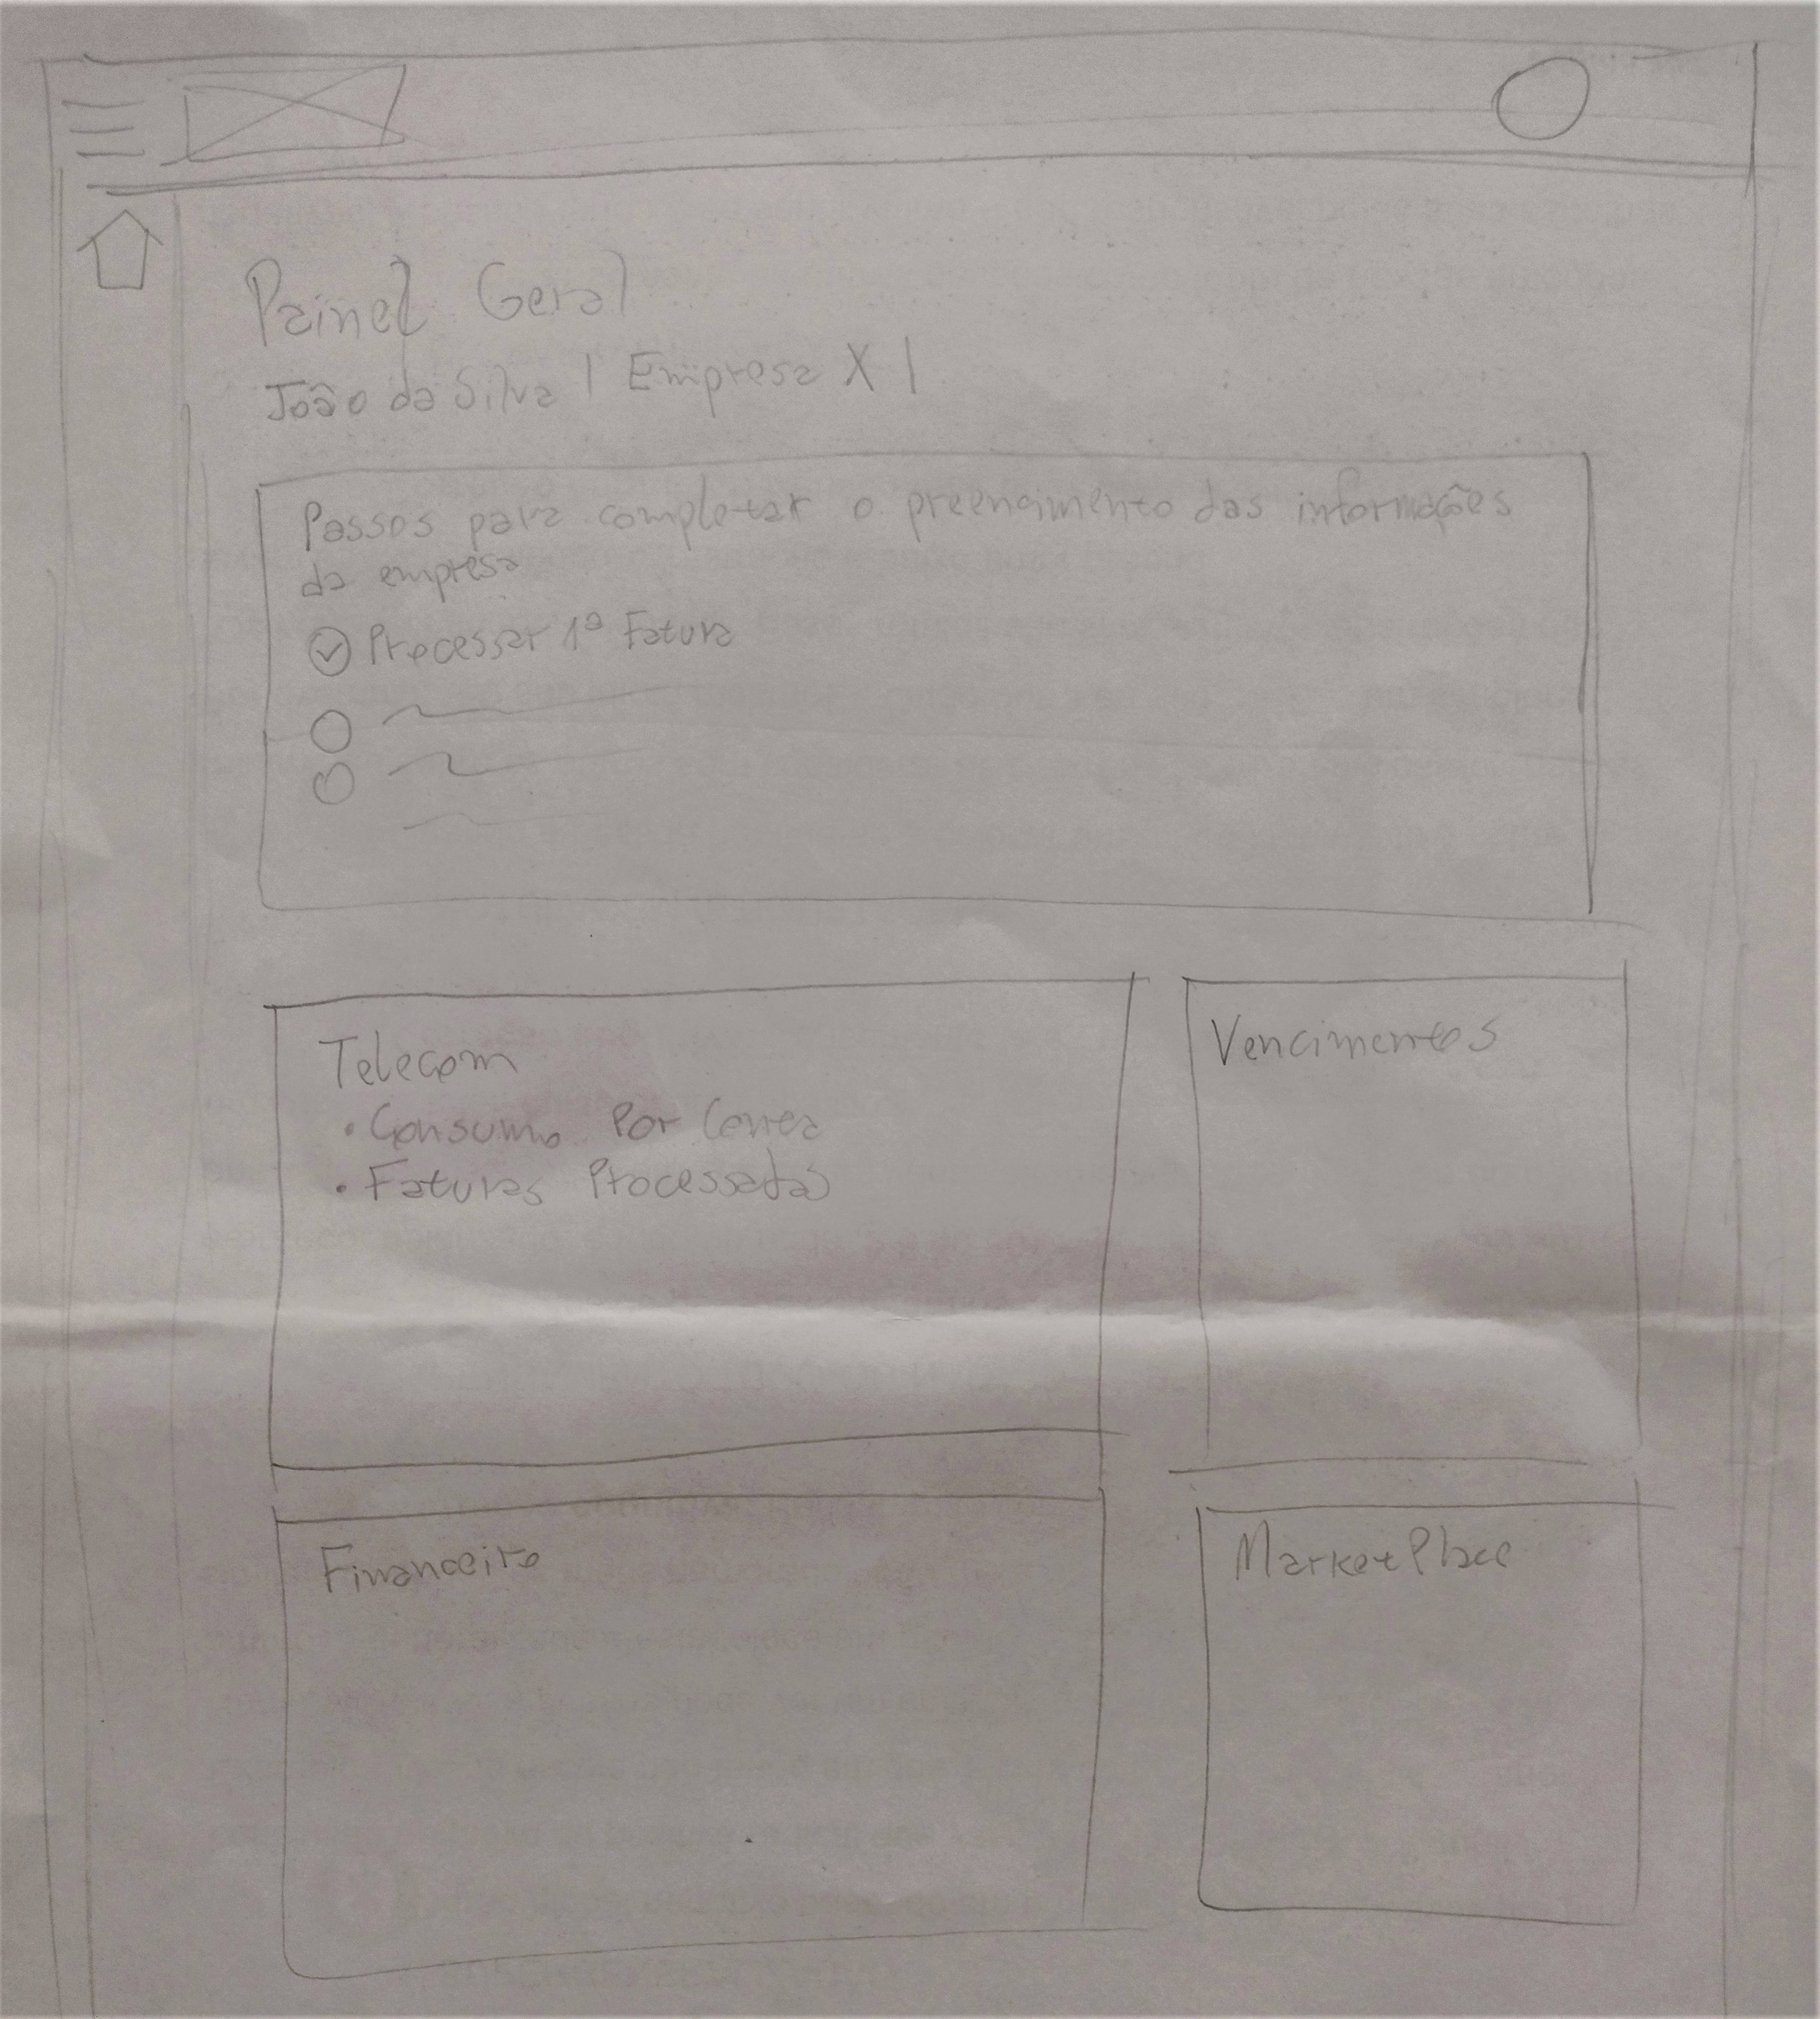 Painel Geral
João da Silva | Empresa X |
Passos para completar o preencimento das informações
da empresa
Processar 1ª Fatura
Telecom
• Consumo Por Conta
• Faturas Processadas
Vencimentos
Financeiro
MarketPlace